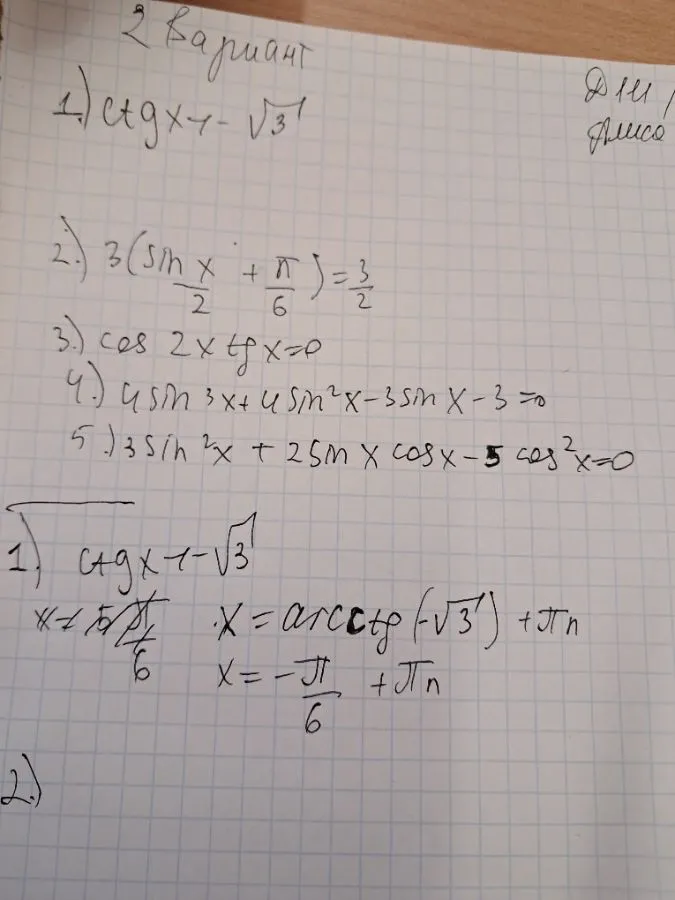 2 Вариант
1.) ctg x = -√3
2.) 3(sin x/2 + π/6) = 3/2
3.) cos 2x tg x = 0
4.) 4 sin 3x + 4 sin²x - 3 sin x - 3 = 0
5.) 3 sin²x + 2 sin x cos x - 5 cos²x = 0
1.) ctg x = -√3
x = arcctg(-√3) + πn
x = -π/6 + πn
2.)